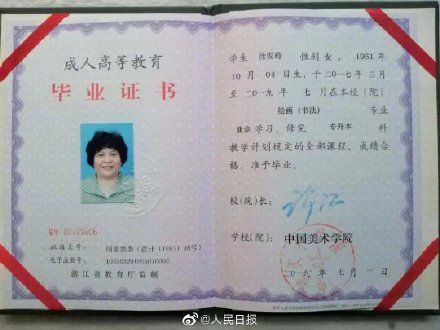 成人高等教育
毕业证书
批准文号：
电子注册号：
浙江省教育厅监制
学生 性别女，1951年
10月04日生，于二〇一七年三月
至二〇一九年 七月在本校（院）
绘画（书法） 专业
业余学习，修完 专升本 科
教学计划规定的全部课程，成绩合
格，准予毕业。
校（院）长：
学校（院）： 中国美术学院
二〇一九年七月一日
@人民日报